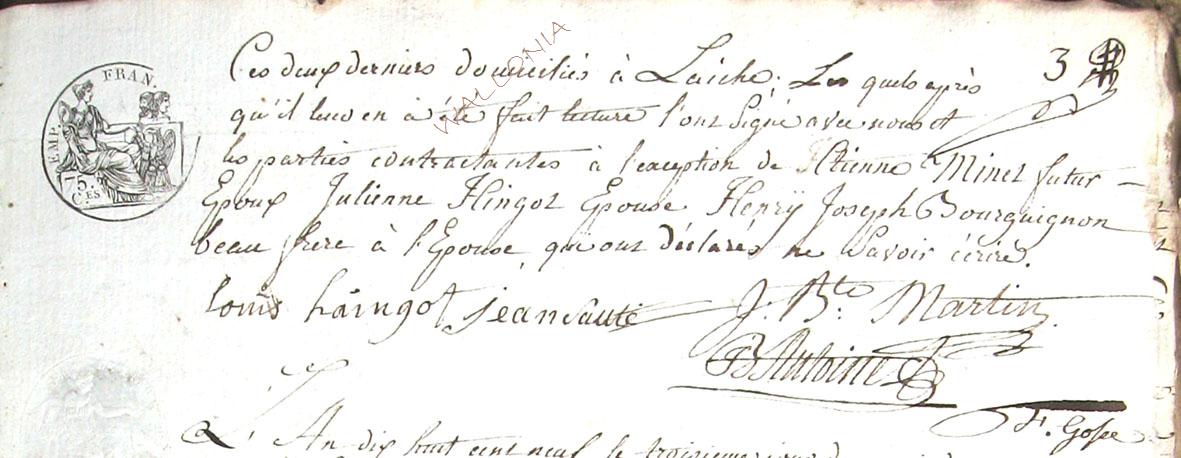 3
FRAN.
EMP.
75.
C.ES
WALLONIA
Ces deux derniers domiciliés à Laiche, Les quels après
qu'il leur en à été fait lecture l'ont Signé avec nous et
les parties contractantes à l'exception de Etienne Minet futur
Epoux Julienne Hingot Epouse Henry Joseph Bourguignon
beau frere à l'Epouse, qui ont déclarés ne Savoir écrire.
louis haingot jean J. Bte. Martin
F. Gofee
L'An dix huit cent neuf le troisieme jour